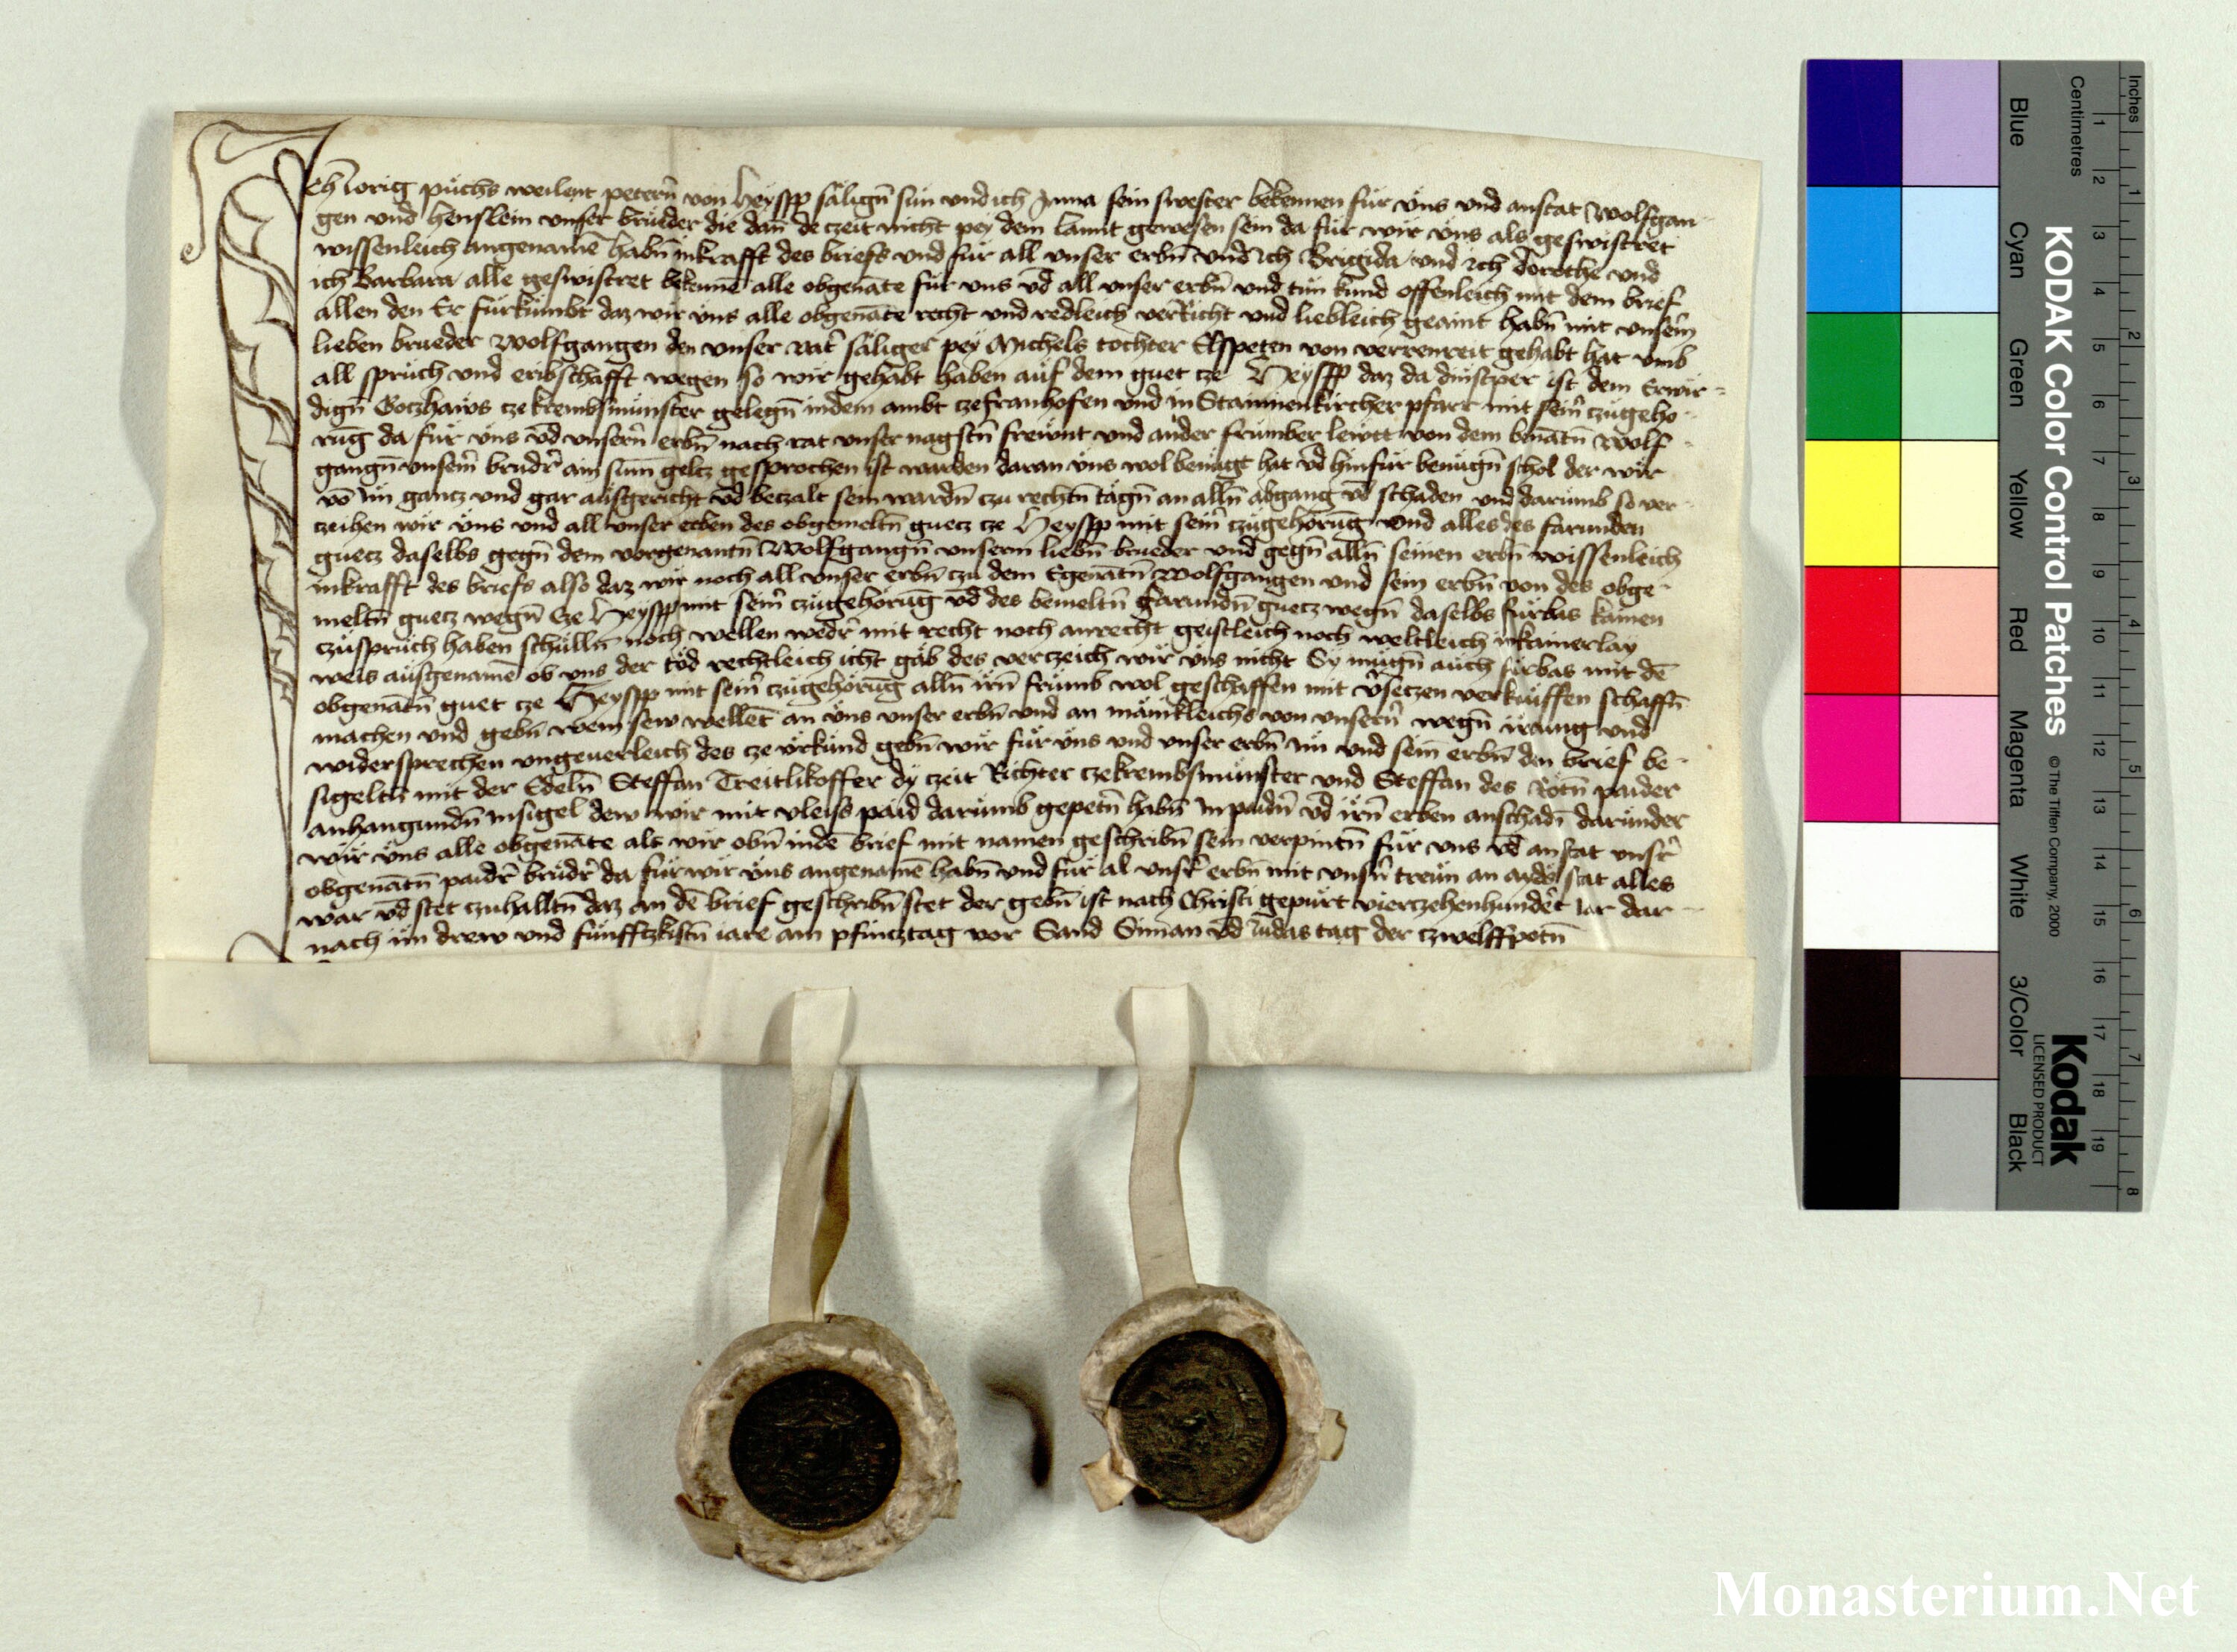 Ich Iorig püchs weilent petern̄ von Heyspp sälign̄ sün und ich Anna sein swester bekennen für üns und anstat Wolfgan-
gen und Henslein unser brüeder die dan̄ de czeit nicht pey dem lannt gewesen sein da für wir üns als geswistret
wissenleich angenamē habn̄ inkrafft des briefs und für all unser erbn̄ und Ich Brigida und Ich dorothe und
ich Barbara alle geswistret bekennē alle obgenāte für uns vd̄ all unser erbn̄ und tün kund offenleich mit dem brief
allen den Er fürkümbt daz wir üns alle obgenāte recht und redleich verRicht und liebleich geaint habn̄ mit unserm̄
lieben brueder Wolfgangen den unser vat̄ säliger pey Michels tochter Elspeten von verrenreit gehabt hat umb
all sprüch und eribschafft wegen so wir gehabt haben auf dem guet cze Heyspp daz da dinstper ist dem Erwir-
dign̄ Goczhaws cze krembsmünster gelegn̄ indem ambt cze franhofen und in Stainnenkircher pfarr mit seim̄ czugeho-
rūg da für üns vd̄ unsern̄ erbn̄ nach rat unser nagstn̄ frewnt und ander frümber lewtt von dem benātn̄ Wolf-
gangn̄ unserm̄ brudr̄ ain sum̄ geltz gesprochen ist warden daran üns wol benügt hat vd̄ hinfür benügn̄ schol der wir
vō im̄ gancz und gar ausgericht vd̄ beczalt sein wardn̄ czu rechtn̄ tägn̄ an alln̄ abgang vd̄ schaden und darumb so ver-
czeihen wir üns und all unser erben des obgemeltn̄ guecz cze Heyspp mit seim̄ czugehörūg und alles des farunden
guecz daselbs gegn̄ dem vorgenantn̄ Wolfgangn̄ unserm liebn̄ brueder und gegn̄ alln̄ seinen erbn̄ wissenleich
inkrafft des briefs also daz wir noch all unser erbn̄ czu dem Egenātn̄ Wolfgangen und sein erbn̄ von des obge-
meltn̄ guecz wegn̄ Cze Heyspp mit seim̄ czugehörūg vd̄ des bemeltn̄ farundn̄ guecz wegn̄ daselbs fürbas kainen
czuspruch haben schülln̄ noch wellen wedr̄ mit recht noch anrecht geistleich noch weltleich inkainerlay
weis ausgenamē ob uns der töd rechtleich icht gäb des verczeich wir üns nicht Sy mügn̄ auch fürbas mit dē
obgenātn̄ guet cze Heyspp mit seim̄ czugehörūg alln̄ irn̄ frümb wol geschaffen mit v̄seczen verkauffen schaffn̄
machen und gebn̄ wem sew wellēt an üns unser erbn̄ und an mänikleichs von unsern̄ wegn̄ irrung und
widersprechen ungeuerleich des cze ürkund gebn̄ wir für üns und unser erbn̄ im̄ und sein̄ erbn̄ den brief be-
sigeltn̄ mit der Edeln̄ Steffan Treitlikoffer dy czeit Richter cze krembsmünster und Steffan des Rötn̄ paider
anhangundn̄ insigel dew wir mit vleiss paid darumb gepetn̄ habn̄ In paidn̄ vd̄ irn̄ erben anschadn̄ darunder
wir üns alle obgenāte als wir obn̄ indē brief mit namen geschribn̄ sein verpintn̄ für uns vd̄ anstat unsr̄
obgenātn̄ paidr̄ brüdr̄ da für wir üns angenamē habn̄ und für al unsr̄ erbn̄ mit unsn̄ treün an aydes stat alles
war vd̄ stet czuhalltn̄ daz an dē brief geschribn̄ stet der gebn̄ ist nach Christi gepürt vierczehenhundēt iar dar-
nach im drew und fünfftzkistn̄ iare am pfincztag vor Sand Siman vd̄ Iudas tag der czwelffpotn̄
KODAK Color Control Patches © The Tiffen Company, 2000
Kodak
LICENSED PRODUCT
Inches
Centimetres
Blue Cyan Green Yellow Red Magenta White 3/Color Black
1 2 3 4 5 6 7 8 9 10 11 12 13 14 15 16 17 18 19
1 2 3 4 5 6 7 8
Monasterium.Net